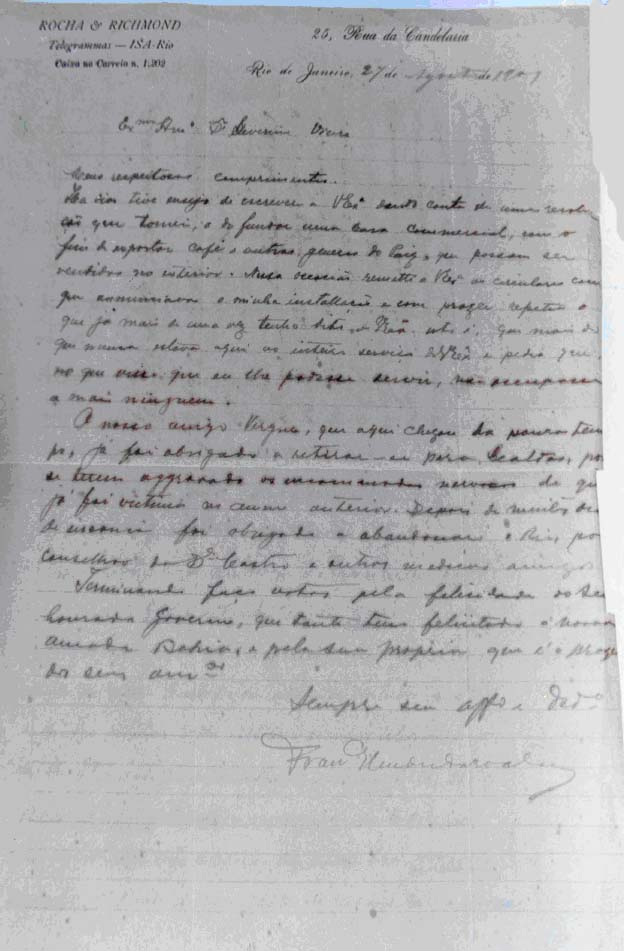 ROCHA & RICHMOND
Telegrammas — ISA-Rio
Caixa no Correio n. 1,202
25, Rua da Candelaria
Rio de Janeiro, 27 de Agosto de 1901
Exmo Amo Dr Severino Vieira
Meus respeitosos comprimentos.
Ha dias tive ensejo de escrever a VExa dando conta de uma resolu
ção que tomei, a de fundar uma casa commercial, com o
fim de exportar café e outros generos do Paiz, que possam ser
vendidos no interior. Nessa occasião remetti a VExa as circulares com
que annunciava a minha installação e com prazer repeti o
que já mais de uma vez tenho dito a VExa, isto é, que mais do
que nunca estava aqui ao inteiro serviço de VExa e pedia que
no que visse que eu lhe podesse servir, não occupasse
a mais ninguem.
O nosso amigo Vergne, que aqui chegou ha pouco tem
po, já foi obrigado a retirar-se para Caldas, por
se terem aggravado os incommodos nervosos de que
já foi victima no anno anterior. Depois de muitos dias
de insomnia foi obrigado a abandonar o Rio, por
conselhos do Dr Castro e outros medicos amigos
Terminando faço votos pela felicidade do seu
honrado Governo, que tanto tem felicitado a nossa
amada Bahia, e pela sua propria que é o prazer
dos seus amos
Sempre seu affo e dedo